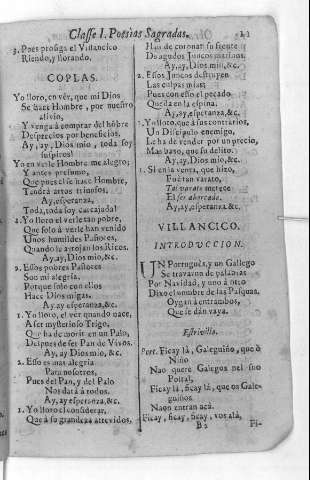 Classe I. Poesias Sagradas.
3. Pues prosiga el Villancico
Riendo, y llorando.
COPLAS.
Yo lloro, en vèr, que mi Dios
Se hace Hombre, por nuestro
alivio,
Y venga à comprar del hōbre
Desprecios por beneficios.
Ay, ay, Dios mio, toda soy
suspiros!
Yo en verle Hombre me alegro;
Y antes presumo,
Que pues el se hace Hombre,
Tendrà
Ay, esperanza,
Toda, toda soy carcajada!
1. Yo lloro el verle tan pobre,
Que solo à verle han venido
Unos humildes Pastores,
Quando le arrojan los Ricos.
Ay, ay, Dios mio, &c.
2. Essos pobres Pastores
Son mi alegria,
Porque solo con ellos
Hace Dios migas.
Ay, ay esperanza, &c.
1. Yo lloro, el ver quando nace,
A ser mysterioso Trigo,
Que ha de morir en un Palo,
Despues de ser Pan de Vivos.
Ay, ay Dios mio, &c.
2. Esso es mas alegria
Para nosotros,
Pues del Pan, y del Palo
Nos darà à todos.
Ay, ay esperanza, &c.
1. Yo lloro el considerar,
Que à su grandeza atrevidos,
Han de coronar su frente
De agudos Juncos marinos.
Ay, ay, Dios mio, &c.
2. Essos Juncos destruyen
Las culpas mias;
Pues con esso el pecado
Queda en la espina.
Ay, ay, esperanza, &c.
1. Yo lloro, que à sus contrarios,
Un Discipulo enemigo,
Le ha de vender por un precio,
Mas baxo, que su delito.
Ay, ay, Dios mio, &c.
Si en la venta, que hizo,
Fuè tan varato,
Tal varato merece
El ser ahorcado.
Ay, ay, esperanza &c.
VILLANCICO.
INTRODUCCION.
UN Portuguès, y un Gallego
Se travaron de palabras
Por Navidad, y uno à otro
Dixo el nombre de las Pasquas.
Oygan à entrambos,
Que se dàn vaya.
Estrivillo.
Port. Ficay là, Galeguiño, que ò
Niño
Nao quere Galegos nel suo
Portal,
Ficay là, ficay là, que os Gale-
guiños
Naon entran acà.
Ficay, ficay, ficay, vos alà,
B 2
Fi-